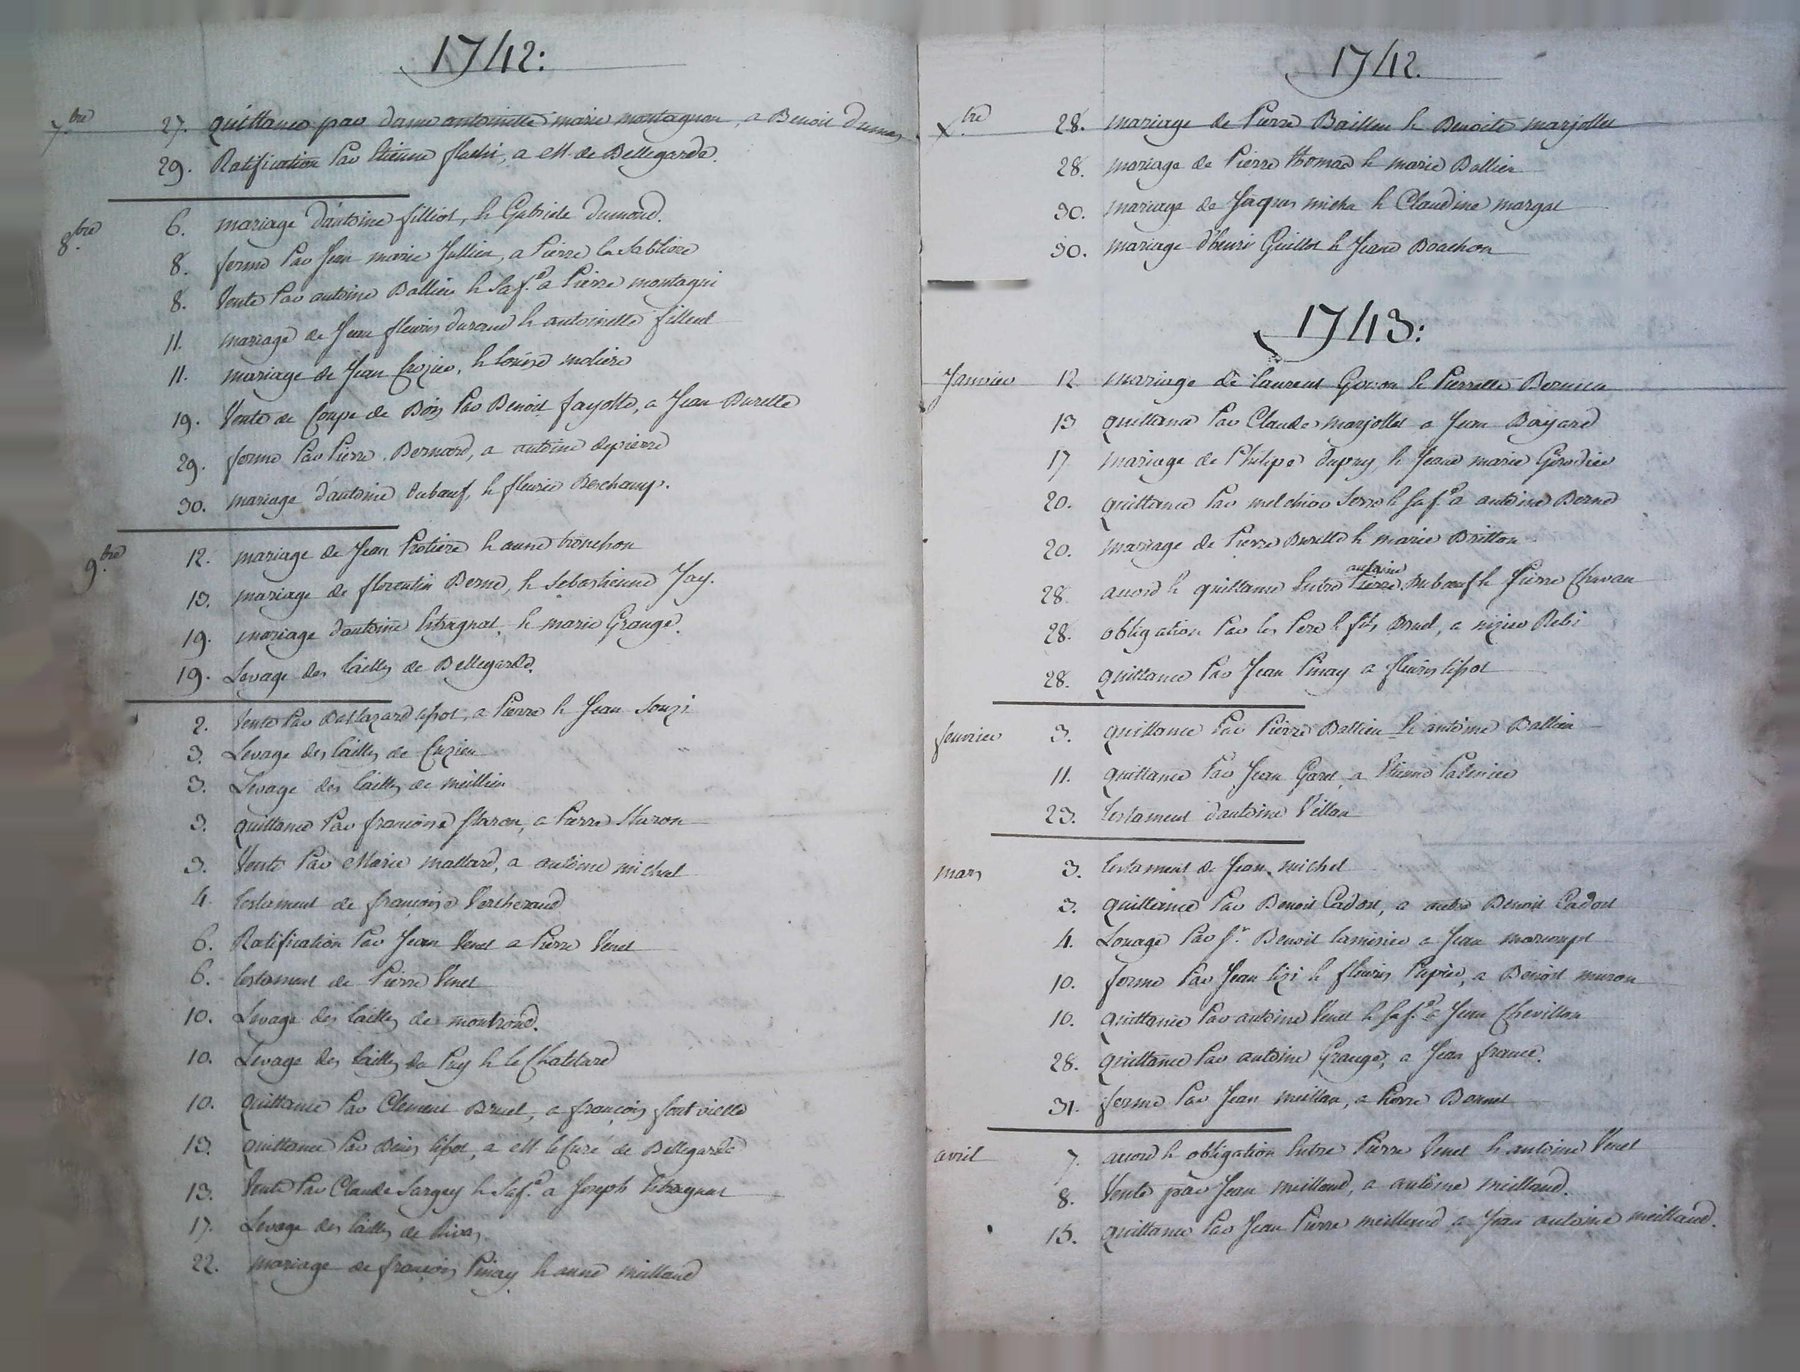 1742:
7.bre 27. quittance par dame antoinette marie montagnon, a Benoit dumas
29. Ratification Par Etienne flachi, a M. de Bellegarde.
8.bre 6. mariage d'antoine filliot, & Gabriele dumond.
8. ferme Par Jean marie Jullien, a Pierre la Sabliere
8. Vente Par antoine Ballieu & Sa f.e a Pierre montagni
11. mariage de Jean fleuris durand & antoinette filleul
11. mariage de Jean Crozier, & louise moliere
19. Vente de Coupe de Bois Par Benoit fayolle, a Jean Burelle
29. ferme Par Pierre Bernard, a antoine depierre
30. mariage d'antoine duboeuf, & fleurie Deschamp.
9.bre 12. mariage de Jean Protiere & anne tronchon
13. mariage de florentin Berne, & Sebastienne Jay.
19. mariage d'antoine thragnat, & marie Grange.
19. Levage des tailles de Bellegarde.
2. Vente Par Baltazard tissot, a Pierre & Jean Souzi
3. Levage des tailles de Cuzieu
3. Levage des tailles de meillieu
3. quittance Par françoise flaron, a Pierre Maron
3. Vente Par Marie mallard, a antoine michel
4. testament de françoise Vercherand
6. Ratification Par Jean Venet a Pierre Venet
6. testament de Pierre Venet
10. Levage des tailles de montrond.
10. Levage des tailles du Puy & le Chatelard
10. quittance Par Clement Bruel, a françois fontvielle
13. quittance Par Denis tissot, a M le Curé de Bellegarde
13. Vente Par Claude Sargey & Sa f.e a Joseph thragnat
17. Levage des tailles de Rivas
22. mariage de françois Pinay & anne meilland
1742.
X.bre 28. mariage de Pierre Baillieu & Benoite marjollet
28. mariage de Pierre thomas & marie Ballieu
30. mariage de Jâques micha & Claudine margat
30. mariage d'henri Guillot & Jeane Boachon
1743:
Janvier 12. mariage de laurent Goyon & Pierrette Bernica
13 quittance Par Claude marjollet a Jean Bayard
17 mariage de Philipe dupuy, & Jeane marie Girodier
20. quittance Par melchior Serre & Sa f.e a antoine Berne
20. mariage de Pierre Burelle & marie Britton
28. acord & quittance Entre antoine Pierre Duboeuf & Pierre Chavan
28. obligation Par les Pere & fils Bruel, a nizier Rebi
28. quittance Par Jean Pinay a fleuris tissot
fevrier 3. quittance Par Pierre Ballieu & antoine Ballieu
11. quittance Par Jean Garel, a Etienne Palmier
23. testament d'antoine Villan
mars 3. testament de Jean michel
3. quittance Par Benoit Cadort, a autre Benoit Cadort
4. Louage Par S.r Benoit tamisier a Jean marcoupt
10. ferme Par Jean tizi & fleuris Papier, a Benoit muron
10. quittance Par antoine Venet & Sa f.e a Jean Chevillon
28. quittance Par antoine Grange, a Jean france.
31. ferme Par Jean meillan, a Pierre Bonnet
avril 7. acord & obligation Entre Pierre Venet & antoine Venet
8. Vente par Jean meilland, a antoine meilland.
15. quittance Par Jean Pierre meilland a Jean antoine meilland.